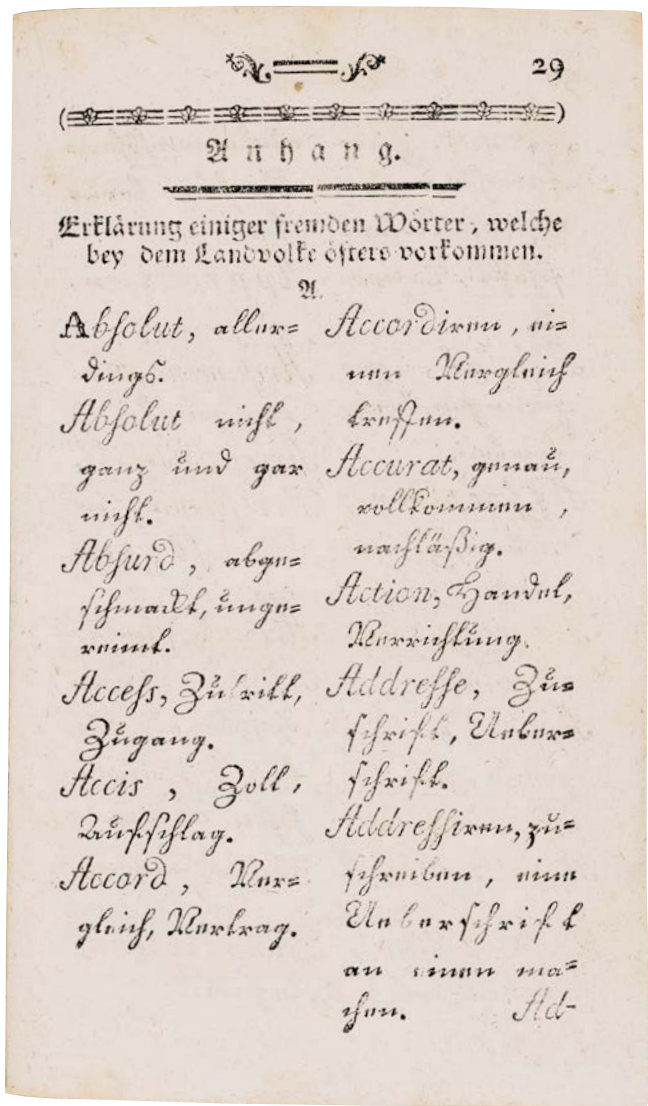 29
Anhang.
Erklärung einiger fremden Wörter, welche
bey dem Landvolke öfters vorkommen.
A.
Absolut, aller=
dings.
Absolut nicht,
ganz und gar
nicht.
Absurd, abge=
schmackt, unge=
reimt.
Access, Zutritt,
Zugang.
Accis, Zoll,
Aufschlag.
Accord, Ver=
gleich, Vertrag.
Accordiren, ei=
nen Vergleich
treffen.
Accurat, genau,
vollkommen,
nachläßig.
Action, Handel,
Verrichtung.
Addresse, Zu=
schrift, Ueber=
schrift.
Addressiren, zu=
schreiben, eine
Ueberschrift
an einen ma=
chen.
Ad-